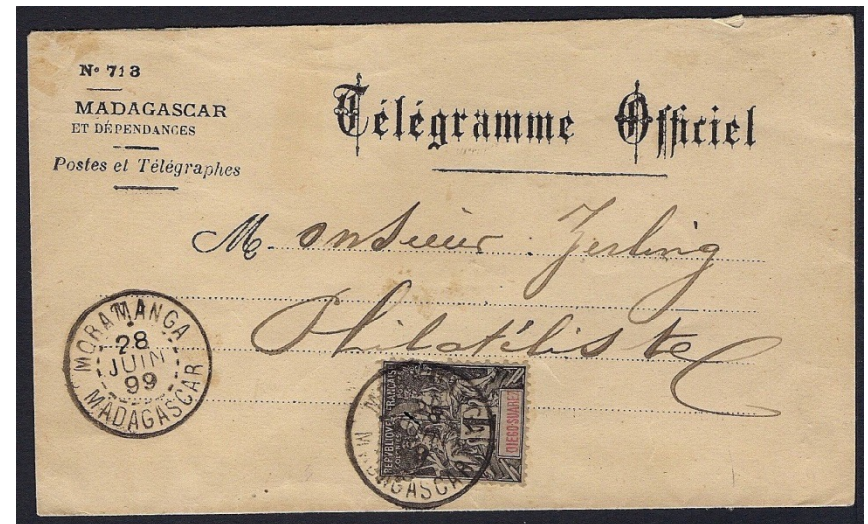 Nº 713
MADAGASCAR
ET DÉPENDANCES
Postes et Télégraphes
Télégramme Officiel
Monsieur Zerling
Philatéliste
MORAMANGA
28
JUIN
99
MADAGASCAR
REPUBLIQUE FRANCAISE
COLONIES
DIEGO-SUAREZ
MADAGASCAR